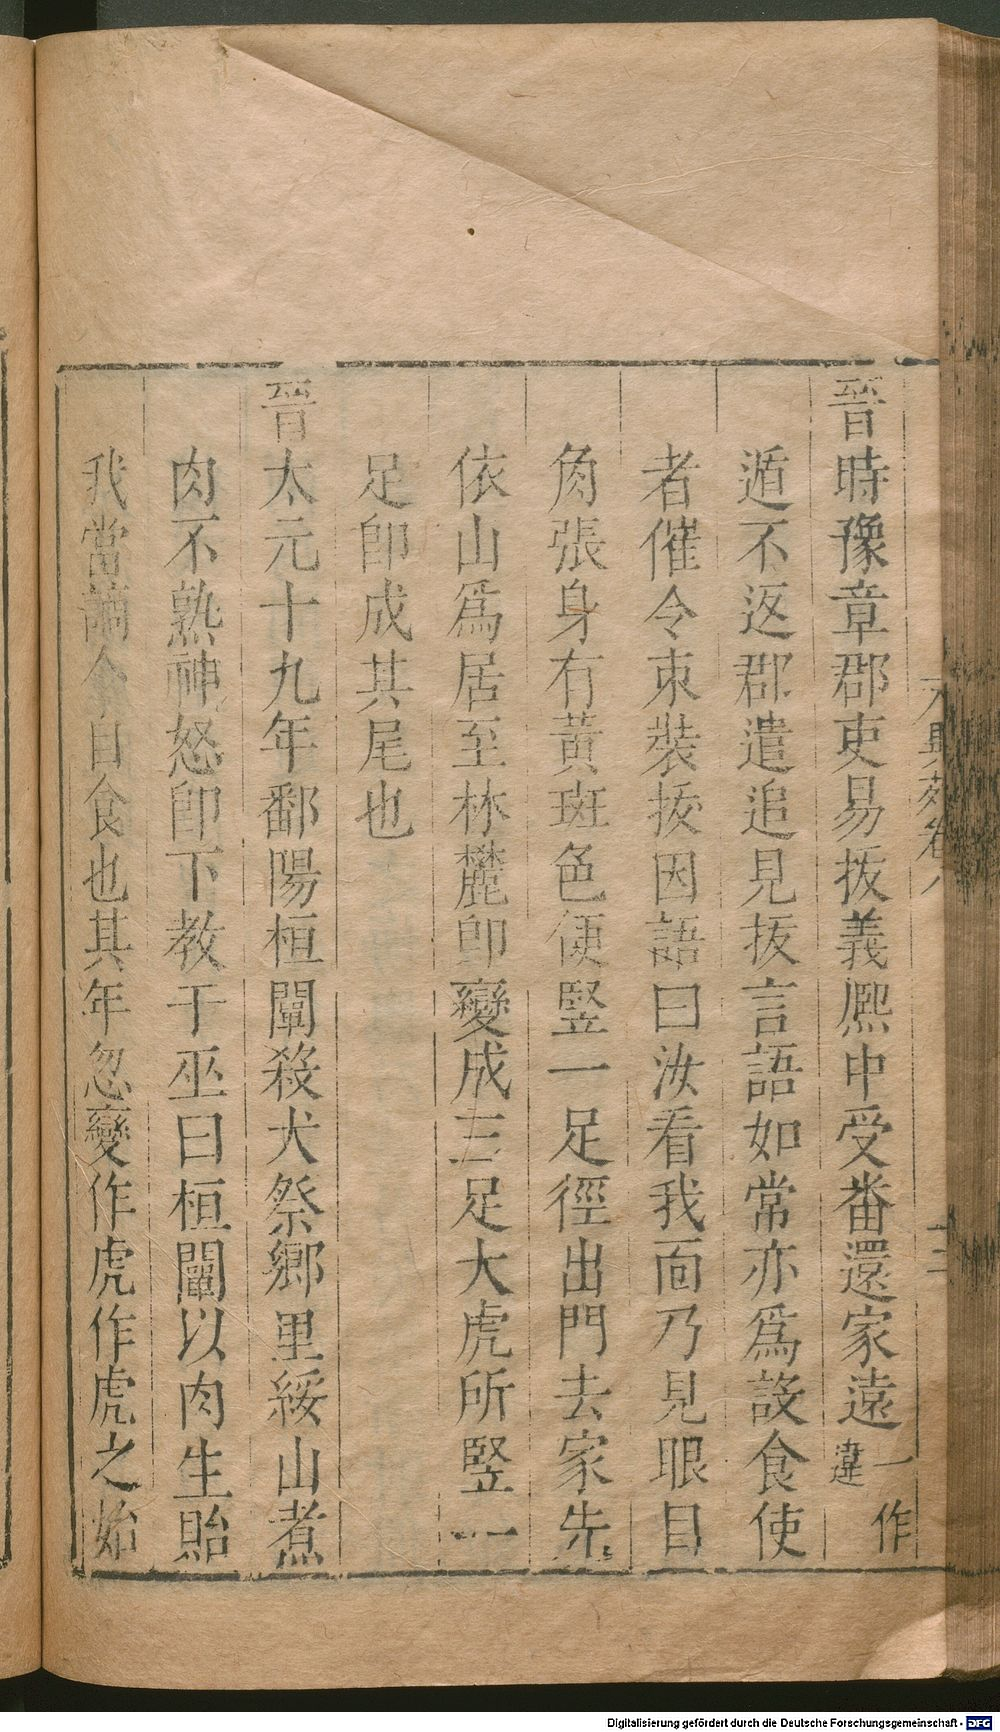 晉時豫章郡吏易拔義熈中受番還家遠一作違
遁不返郡遣追見拔言語如常亦爲設食使
者催令束裝拔因語曰汝看我面乃見眼目
角張身有黃斑色便竪一足徑出門去家先
依山爲居至林麓卽變成三足大虎所竪一
足卽成其尾也
晉太元十九年鄱陽桓闡殺犬祭鄉里綏山煮
肉不熟神怒卽下教于巫曰桓闡以肉生貽
我當謫令自食也其年忽變作虎作虎之始
異苑卷八
十二
Digitalisierung gefördert durch die Deutsche Forschungsgemeinschaft - DFG